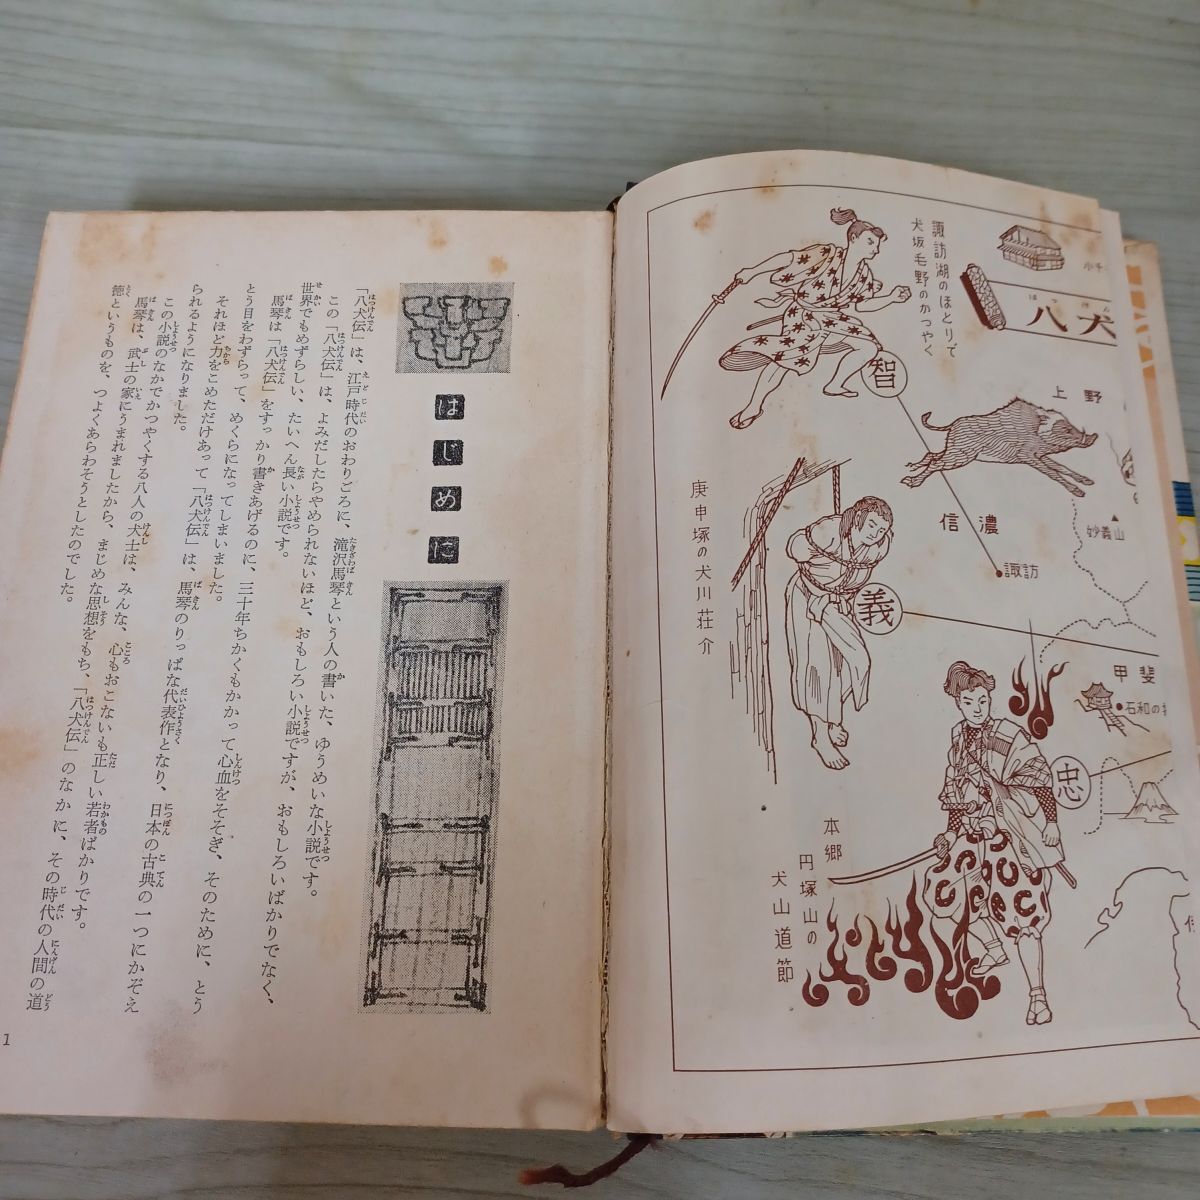 諏訪湖のほとりで
犬坂毛野のかつやく
小千
八犬
智
上野
妙義山
信濃
諏訪
庚申塚の犬川荘介
義
甲斐
石和の
忠
本郷
円塚山の
犬山道節
はじめに
「八犬伝」は、江戸時代のおわりごろに、滝沢馬琴という人の書いた、ゆうめいな小説です。
この「八犬伝」は、よみだしたらやめられないほど、おもしろい小説ですが、おもしろいばかりでなく、
世界でもめずらしい、たいへん長い小説です。
馬琴は「八犬伝」をすっかり書きあげるのに、三十年ちかくもかかって心血をそそぎ、そのために、とう
とう目をわずらって、めくらになってしまいました。
それほど力をこめただけあって「八犬伝」は、馬琴のりっぱな代表作となり、日本の古典の一つにかぞえ
られるようになりました。
この小説のなかでかつやくする八人の犬士は、みんな、心もおこないも正しい若者ばかりです。
馬琴は、武士の家にうまれましたから、まじめな思想をもち、「八犬伝」のなかに、その時代の人間の道
徳というものを、つよくあらわそうとしたのでした。
1